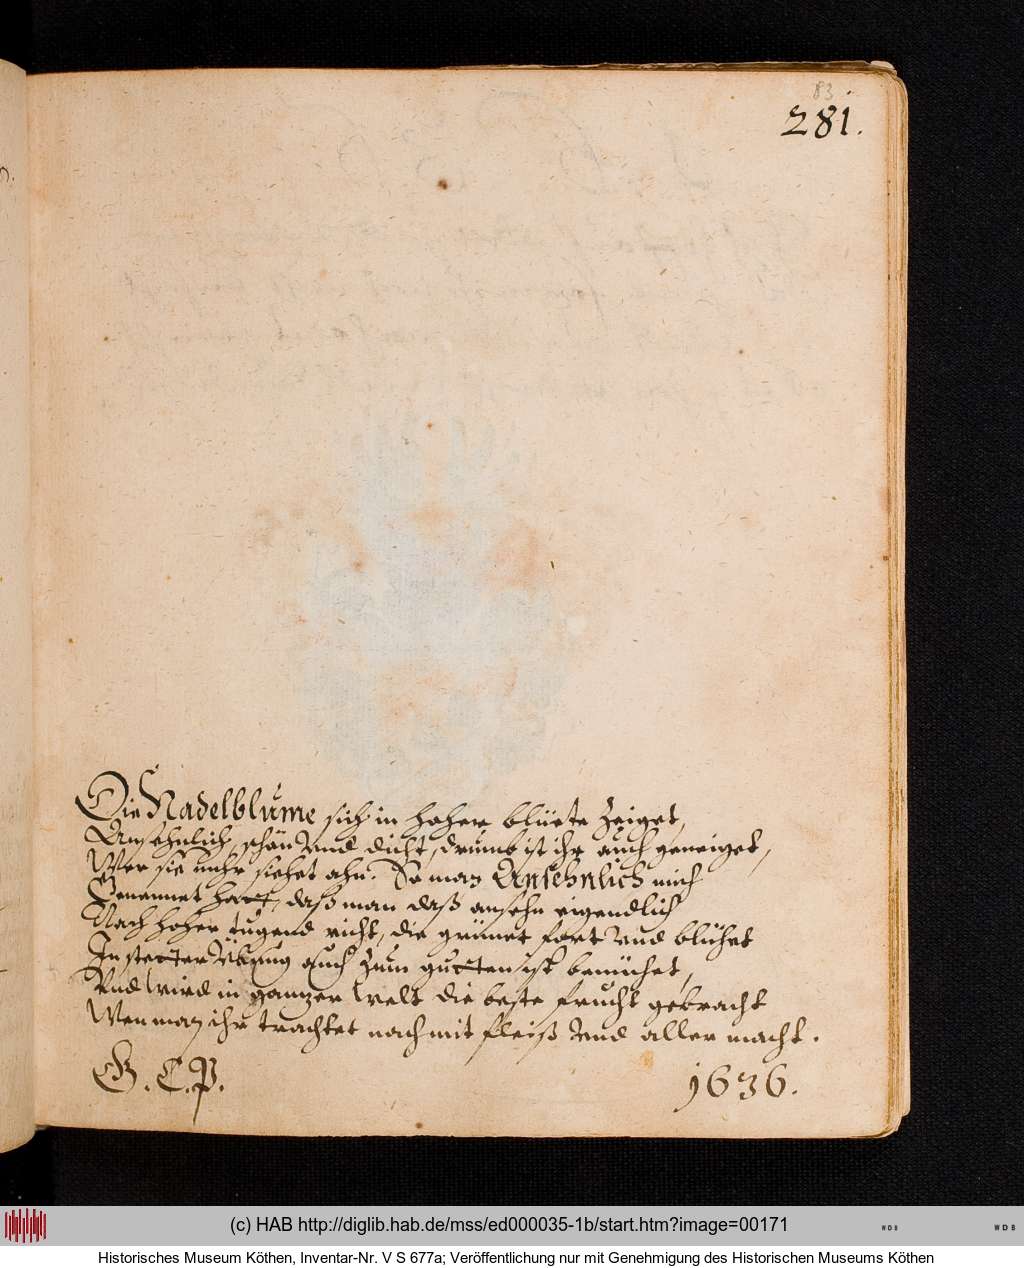 83
281.
Die Nadelblume sich in hoher blüete zeiget,
Ansehnlich, schön Vnd dicht, drumb ist ihr auch geneiget,
Wer sie nuhr siehet ahn. So man Ansehnlich mich
Genennet hatt, daß man daß ansehn eigendlich
Nach hoher tugend richt, die grünet fort Vnd blühet
In steter übung auch zum gutten ist bemühet,
Vnd wird in gantzer welt die beste frucht gebracht
Wen man ihr trachtet nach mit fleiß Vnd aller macht.
G. E. P. 1636.
(c) HAB http://diglib.hab.de/mss/ed000035-1b/start.htm?image=00171
WDB WDB
Historisches Museum Köthen, Inventar-Nr. V S 677a; Veröffentlichung nur mit Genehmigung des Historischen Museums Köthen